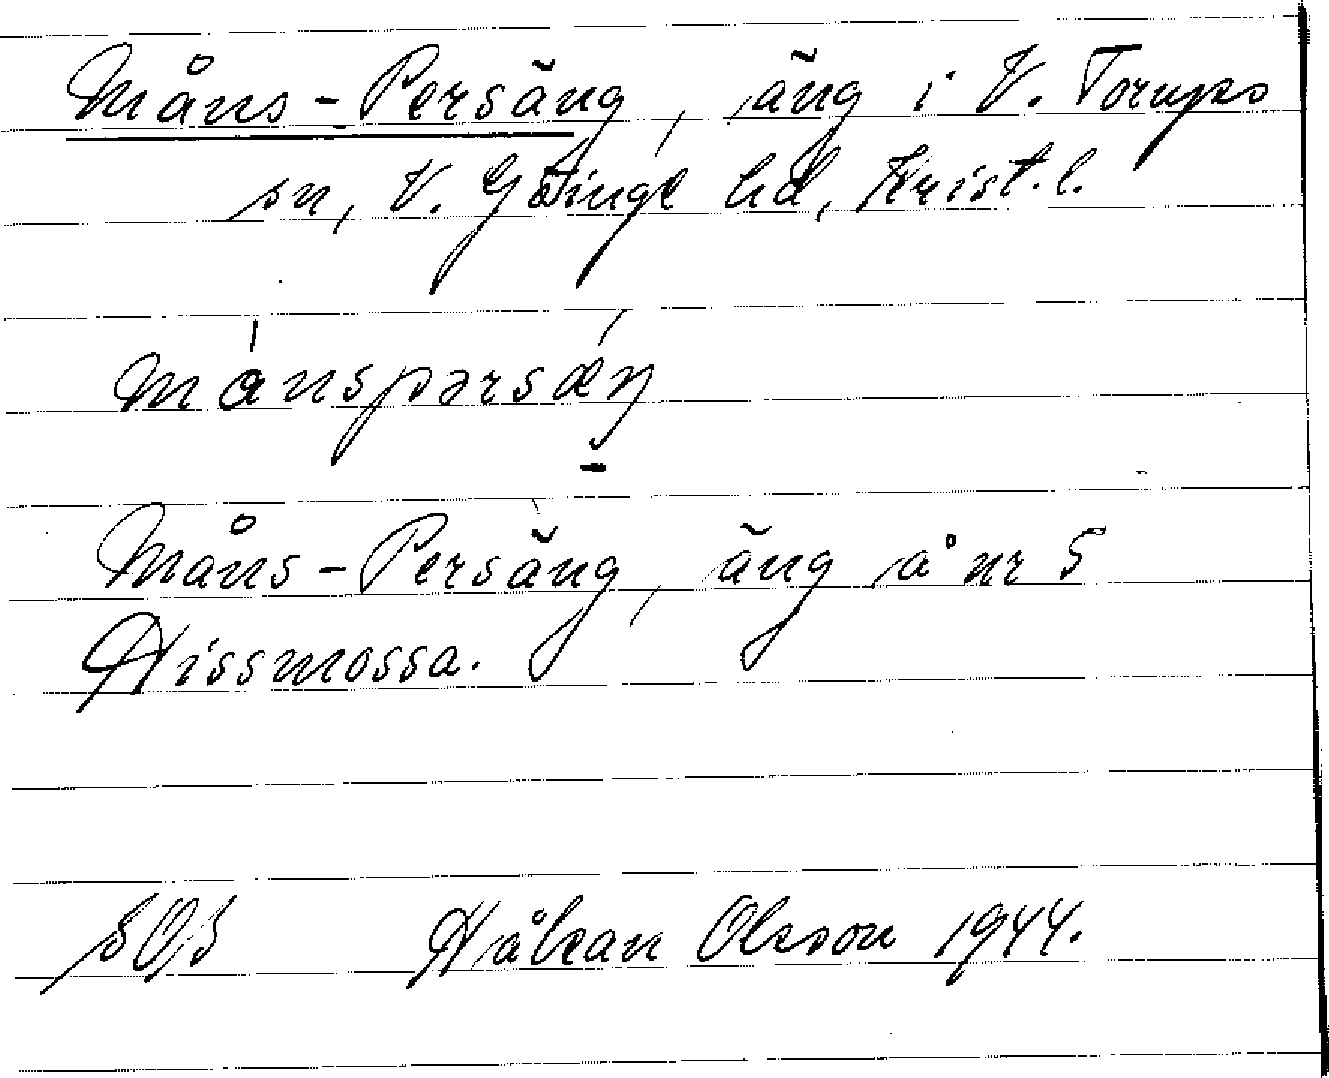 Måns-Persäng, äng i V. Torups
sn, V. Göinge hd, Krist.l.
månspərsæŋ
Måns-Persäng, äng å nr 5
Hissmossa.
SOS Håkan Olsson 1944.